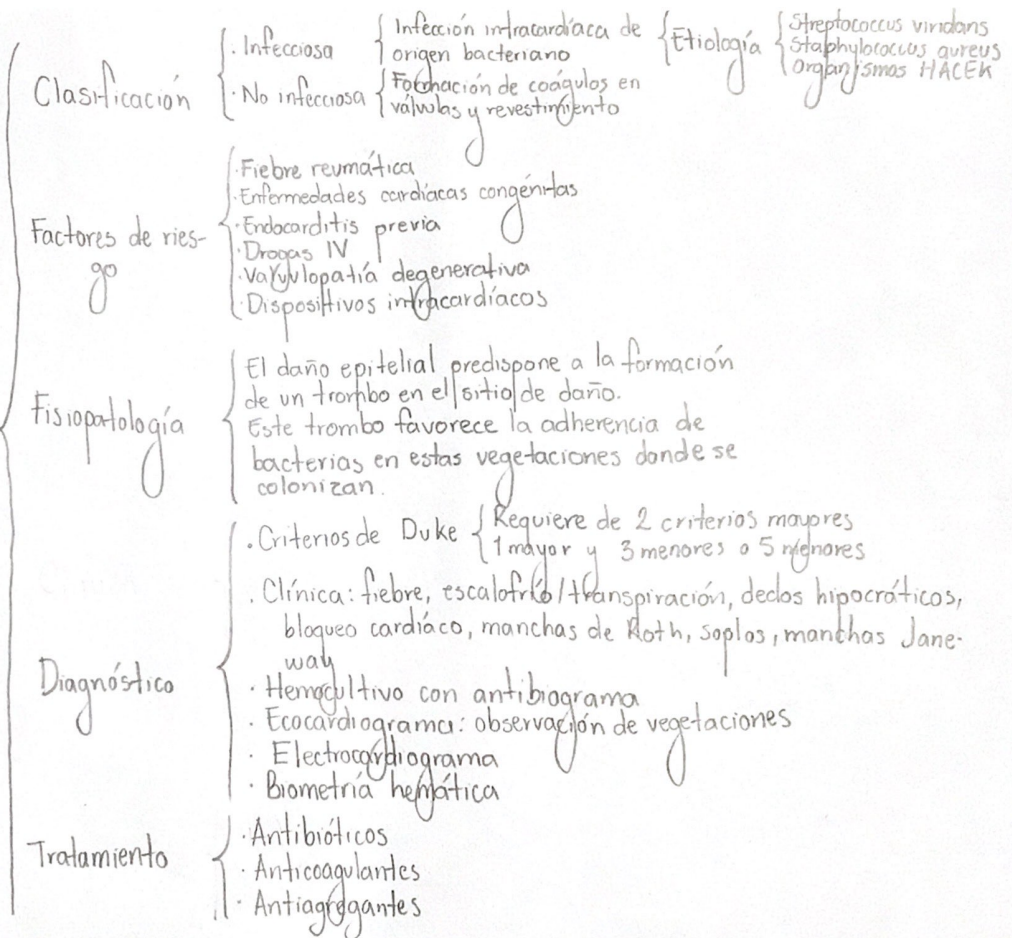 Clasificación
· Infecciosa
Infección intracardíaca de
origen bacteriano
Etiología
Streptococcus viridans
Staphylococcus aureus
Organismos HACEK
· No infecciosa
Formación de coágulos en
válvulas y revestimiento
Factores de ries-
go
· Fiebre reumática
· Enfermedades cardíacas congénitas
· Endocarditis previa
· Drogas IV
· Valvulopatía degenerativa
· Dispositivos intracardíacos
Fisiopatología
El daño epitelial predispone a la formación
de un trombo en el sitio de daño.
Este trombo favorece la adherencia de
bacterias en estas vegetaciones donde se
colonizan.
Diagnóstico
· Criterios de Duke
Requiere de 2 criterios mayores
1 mayor y 3 menores o 5 menores
· Clínica: fiebre, escalofrío/transpiración, dedos hipocráticos,
bloqueo cardíaco, manchas de Roth, soplos, manchas Jane-
way
· Hemocultivo con antibiograma
· Ecocardiograma: observación de vegetaciones
· Electrocardiograma
· Biometría hemática
Tratamiento
· Antibióticos
· Anticoagulantes
· Antiagregantes